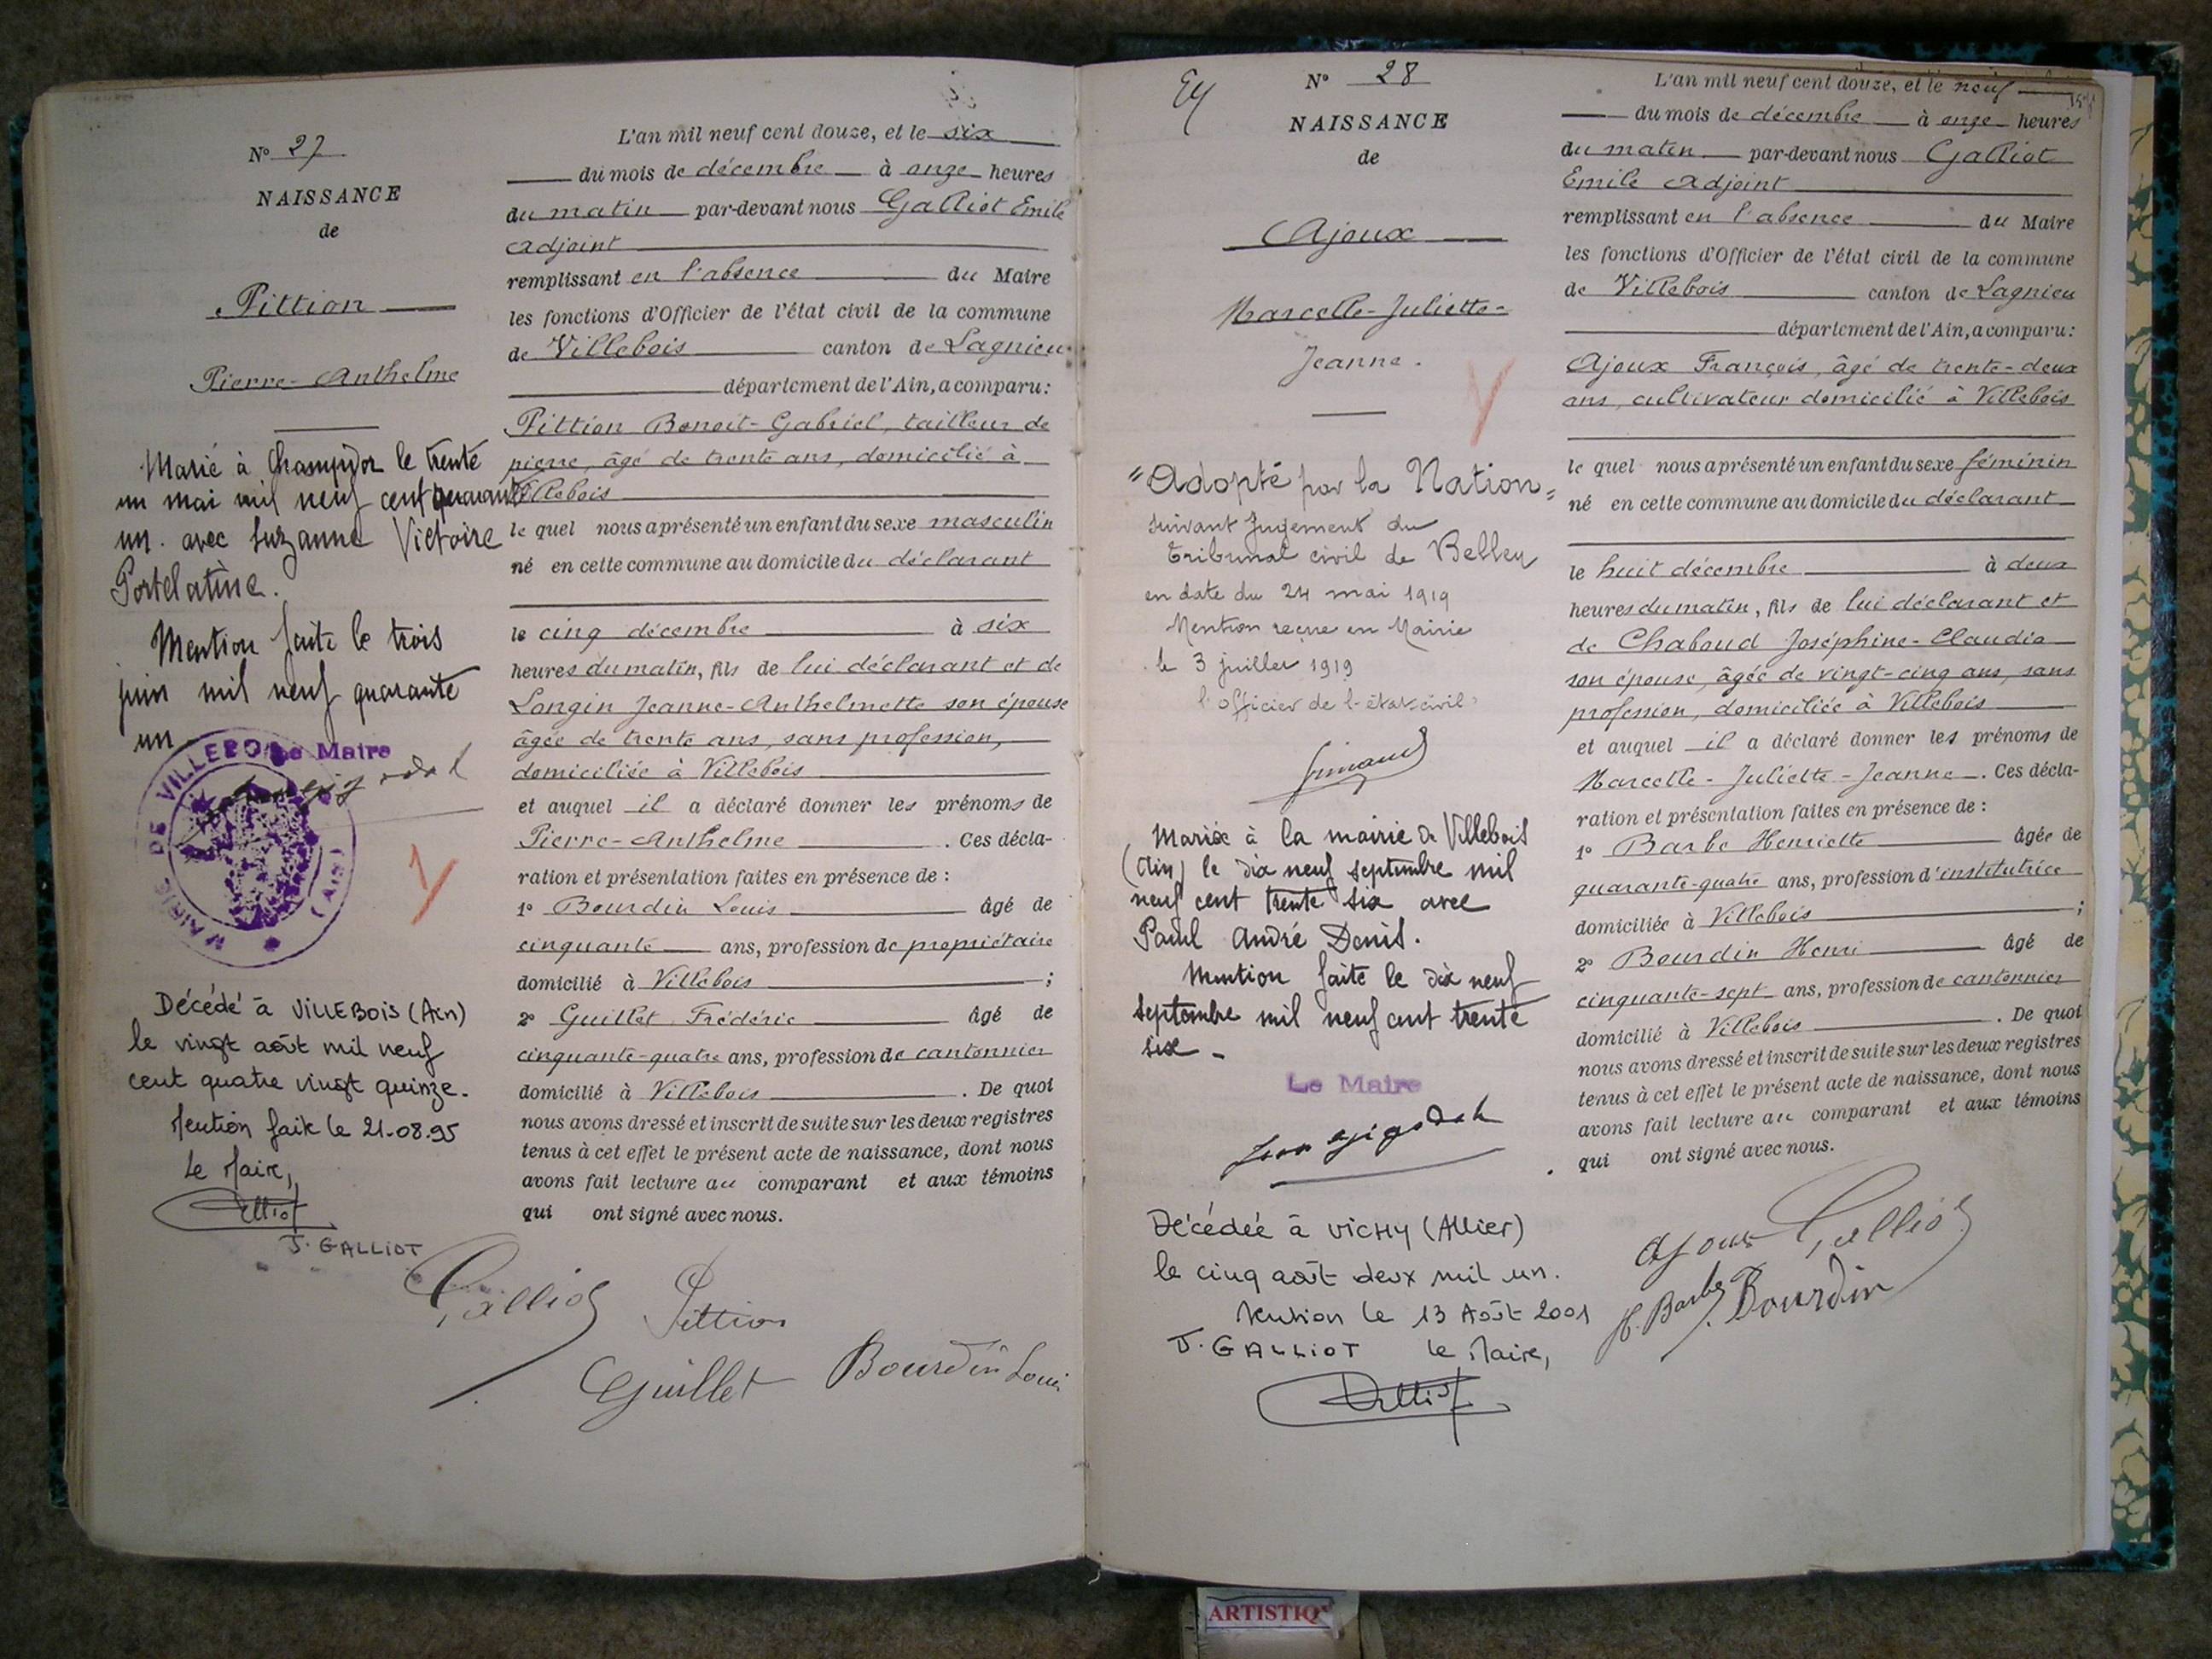 N° 27
NAISSANCE
de
Pittion
Pierre-Anthelme
Marié à Champdor le trente
un mai mil neuf cent quarante
un. avec Suzanne Victoire
Portelatine.
Mention faite le trois
juin mil neuf quarante
un
Le Maire
MAIRIE DE VILLEBOIS (AIN)
Décédé à VILLEBOIS (Ain)
le vingt août mil neuf
cent quatre vingt quinze.
Mention faite le 21-08-95
Le Maire,
J. GALLIOT
L'an mil neuf cent douze, et le six
du mois de décembre à onze heures
du matin par-devant nous Galliot Emile
adjoint
remplissant en l'absence du Maire
les fonctions d'Officier de l'état civil de la commune
de Villebois canton de Lagnieu
département de l'Ain, a comparu:
Pittion Benoit-Gabriel, tailleur de
pierre, âgé de trente ans, domicilié à
Villebois
le quel nous a présenté un enfant du sexe masculin
né en cette commune au domicile du déclarant
le cinq décembre à six
heures du matin, fils de lui déclarant et de
Longin Jeanne-Anthelmette son épouse
âgée de trente ans, sans profession,
domiciliée à Villebois
et auquel il a déclaré donner les prénoms de
Pierre-Anthelme. Ces décla-
ration et présentation faites en présence de :
1° Bourdin Louis âgé de
cinquante ans, profession de propriétaire
domicilié à Villebois ;
2° Guillet Frédéric âgé de
cinquante-quatre ans, profession de cantonnier
domicilié à Villebois. De quoi
nous avons dressé et inscrit de suite sur les deux registres
tenus à cet effet le présent acte de naissance, dont nous
avons fait lecture au comparant et aux témoins
qui ont signé avec nous.
Galliot Pittion
Guillet Bourdin Louis
N° 28
NAISSANCE
de
Ajoux
Marcelle-Juliette-
Jeanne.
"Adopté par la Nation"
suivant Jugement du
Tribunal civil de Belley
en date du 24 mai 1919
Mention reçue en Mairie
le 3 juillet 1919
l'officier de l'état-civil,
Mariée à la mairie de Villebois
(Ain) le dix neuf septembre mil
neuf cent trente six avec
Paul André Denis.
Mention faite le dix neuf
septembre mil neuf cent trente
six -
Le Maire
Décédée à VICHY (Allier)
le cinq août deux mil un.
Mention le 13 Août 2001
J. GALLIOT Le Maire,
L'an mil neuf cent douze, et le neuf
du mois de décembre à onze heures
du matin par-devant nous Galliot
Emile adjoint
remplissant en l'absence du Maire
les fonctions d'Officier de l'état civil de la commune
de Villebois canton de Lagnieu
département de l'Ain, a comparu:
Ajoux François, âgé de trente-deux
ans, cultivateur domicilié à Villebois
le quel nous a présenté un enfant du sexe féminin
né en cette commune au domicile du déclarant
le huit décembre à deux
heures du matin, fils de lui déclarant et
de Chaboud Joséphine-Claudia
son épouse, âgée de vingt-cinq ans, sans
profession, domiciliée à Villebois
et auquel il a déclaré donner les prénoms de
Marcelle-Juliette-Jeanne. Ces décla-
ration et présentation faites en présence de :
1° Barbe Henriette âgée de
quarante-quatre ans, profession d'institutrice
domiciliée à Villebois ;
2° Bourdin Henri âgé de
cinquante-sept ans, profession de cantonnier
domicilié à Villebois. De quoi
nous avons dressé et inscrit de suite sur les deux registres
tenus à cet effet le présent acte de naissance, dont nous
avons fait lecture au comparant et aux témoins
qui ont signé avec nous.
Ajoux Galliot
H. Barbe Bourdin
ARTISTIQ